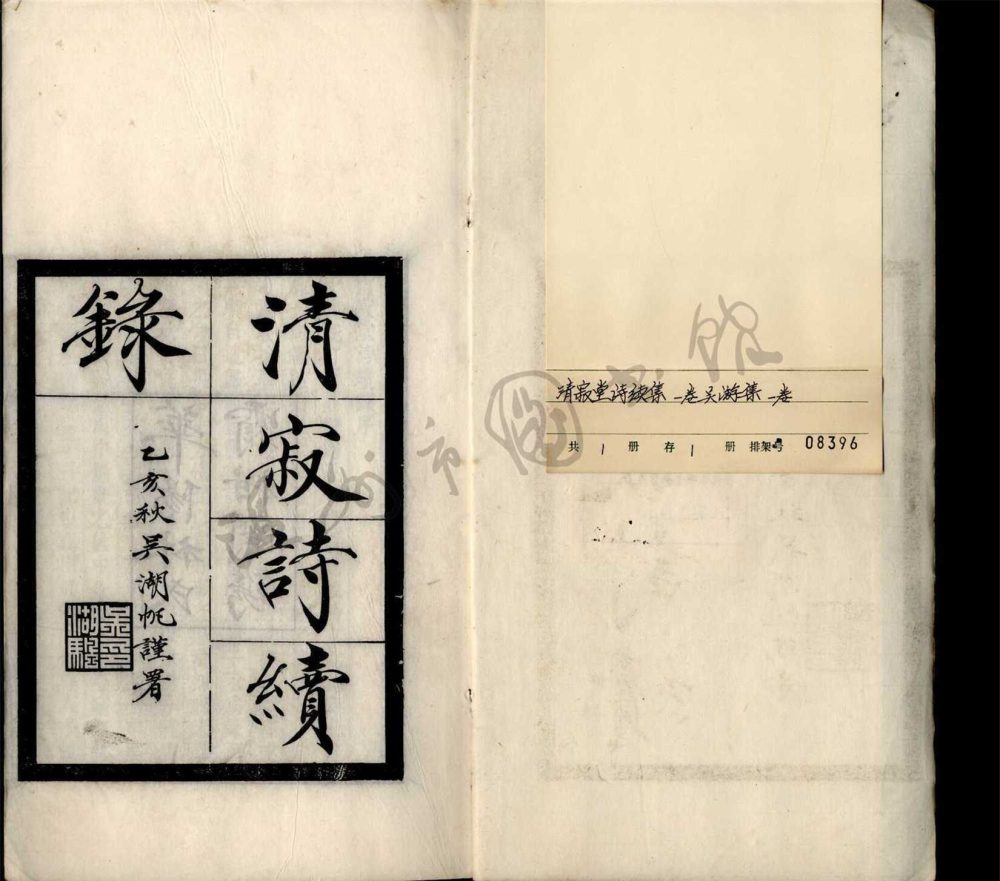 清寂堂诗续集 一卷吴游集 一卷
共 1 册 存 1 册 排架号 08396
清寂詩續
錄
乙亥秋吳湖帆謹署
吳印湖颿